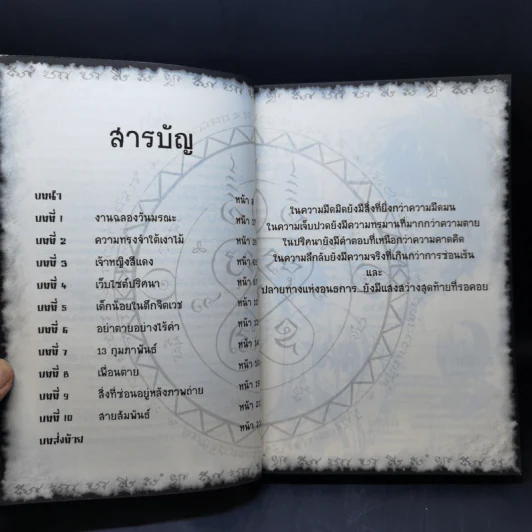 สารบัญ
บทนำ หน้า
บทที่ 1 งานฉลองวันมรณะ หน้า
บทที่ 2 ความทรงจำใต้เงาไม้ หน้า
บทที่ 3 เจ้าหญิงสีแดง หน้า
บทที่ 4 เว็บไซต์ปริศนา หน้า
บทที่ 5 เด็กน้อยในตึกจิตเวช หน้า
บทที่ 6 อย่าตายอย่างไร้ค่า หน้า
บทที่ 7 13 กุมภาพันธ์ หน้า
บทที่ 8 เพื่อนตาย หน้า
บทที่ 9 สิ่งที่ซ่อนอยู่หลังภาพถ่าย หน้า
บทที่ 10 สายสัมพันธ์ หน้า
บทส่งท้าย
ในความมืดมิดยังมีสิ่งที่ยิ่งกว่าความมืดมน
ในความเจ็บปวดยังมีความทรมานที่มากกว่าความตาย
ในปริศนายังมีคำตอบที่เหนือกว่าความคาดคิด
ในความลึกลับยังมีความจริงที่เกินกว่าการซ่อนเร้น
และ
ปลายทางแห่งอนธการ...ยังมีแสงสว่างสุดท้ายที่รอคอย